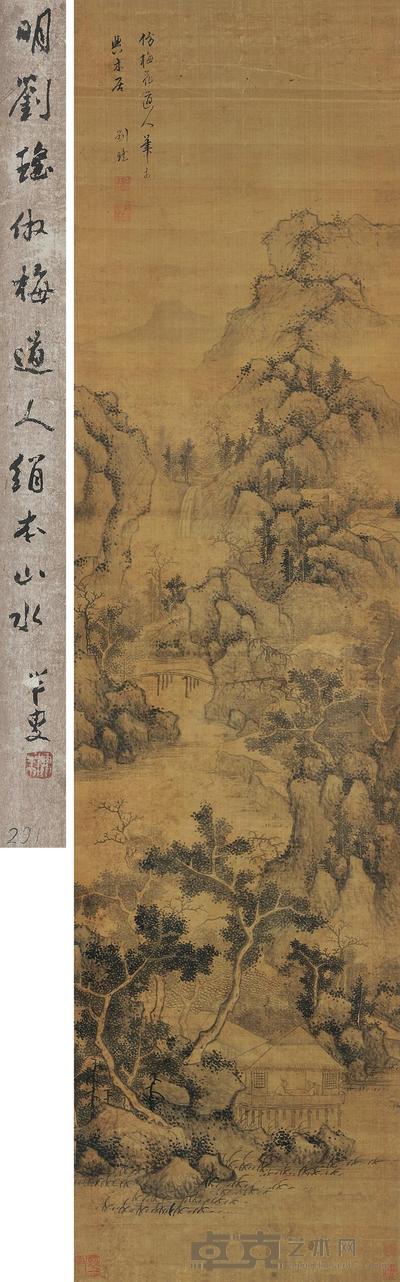 明劉瑤仿梅道人絹本山水
291
仿梅花道人筆於
興木居
劉瑤
卓克艺术网